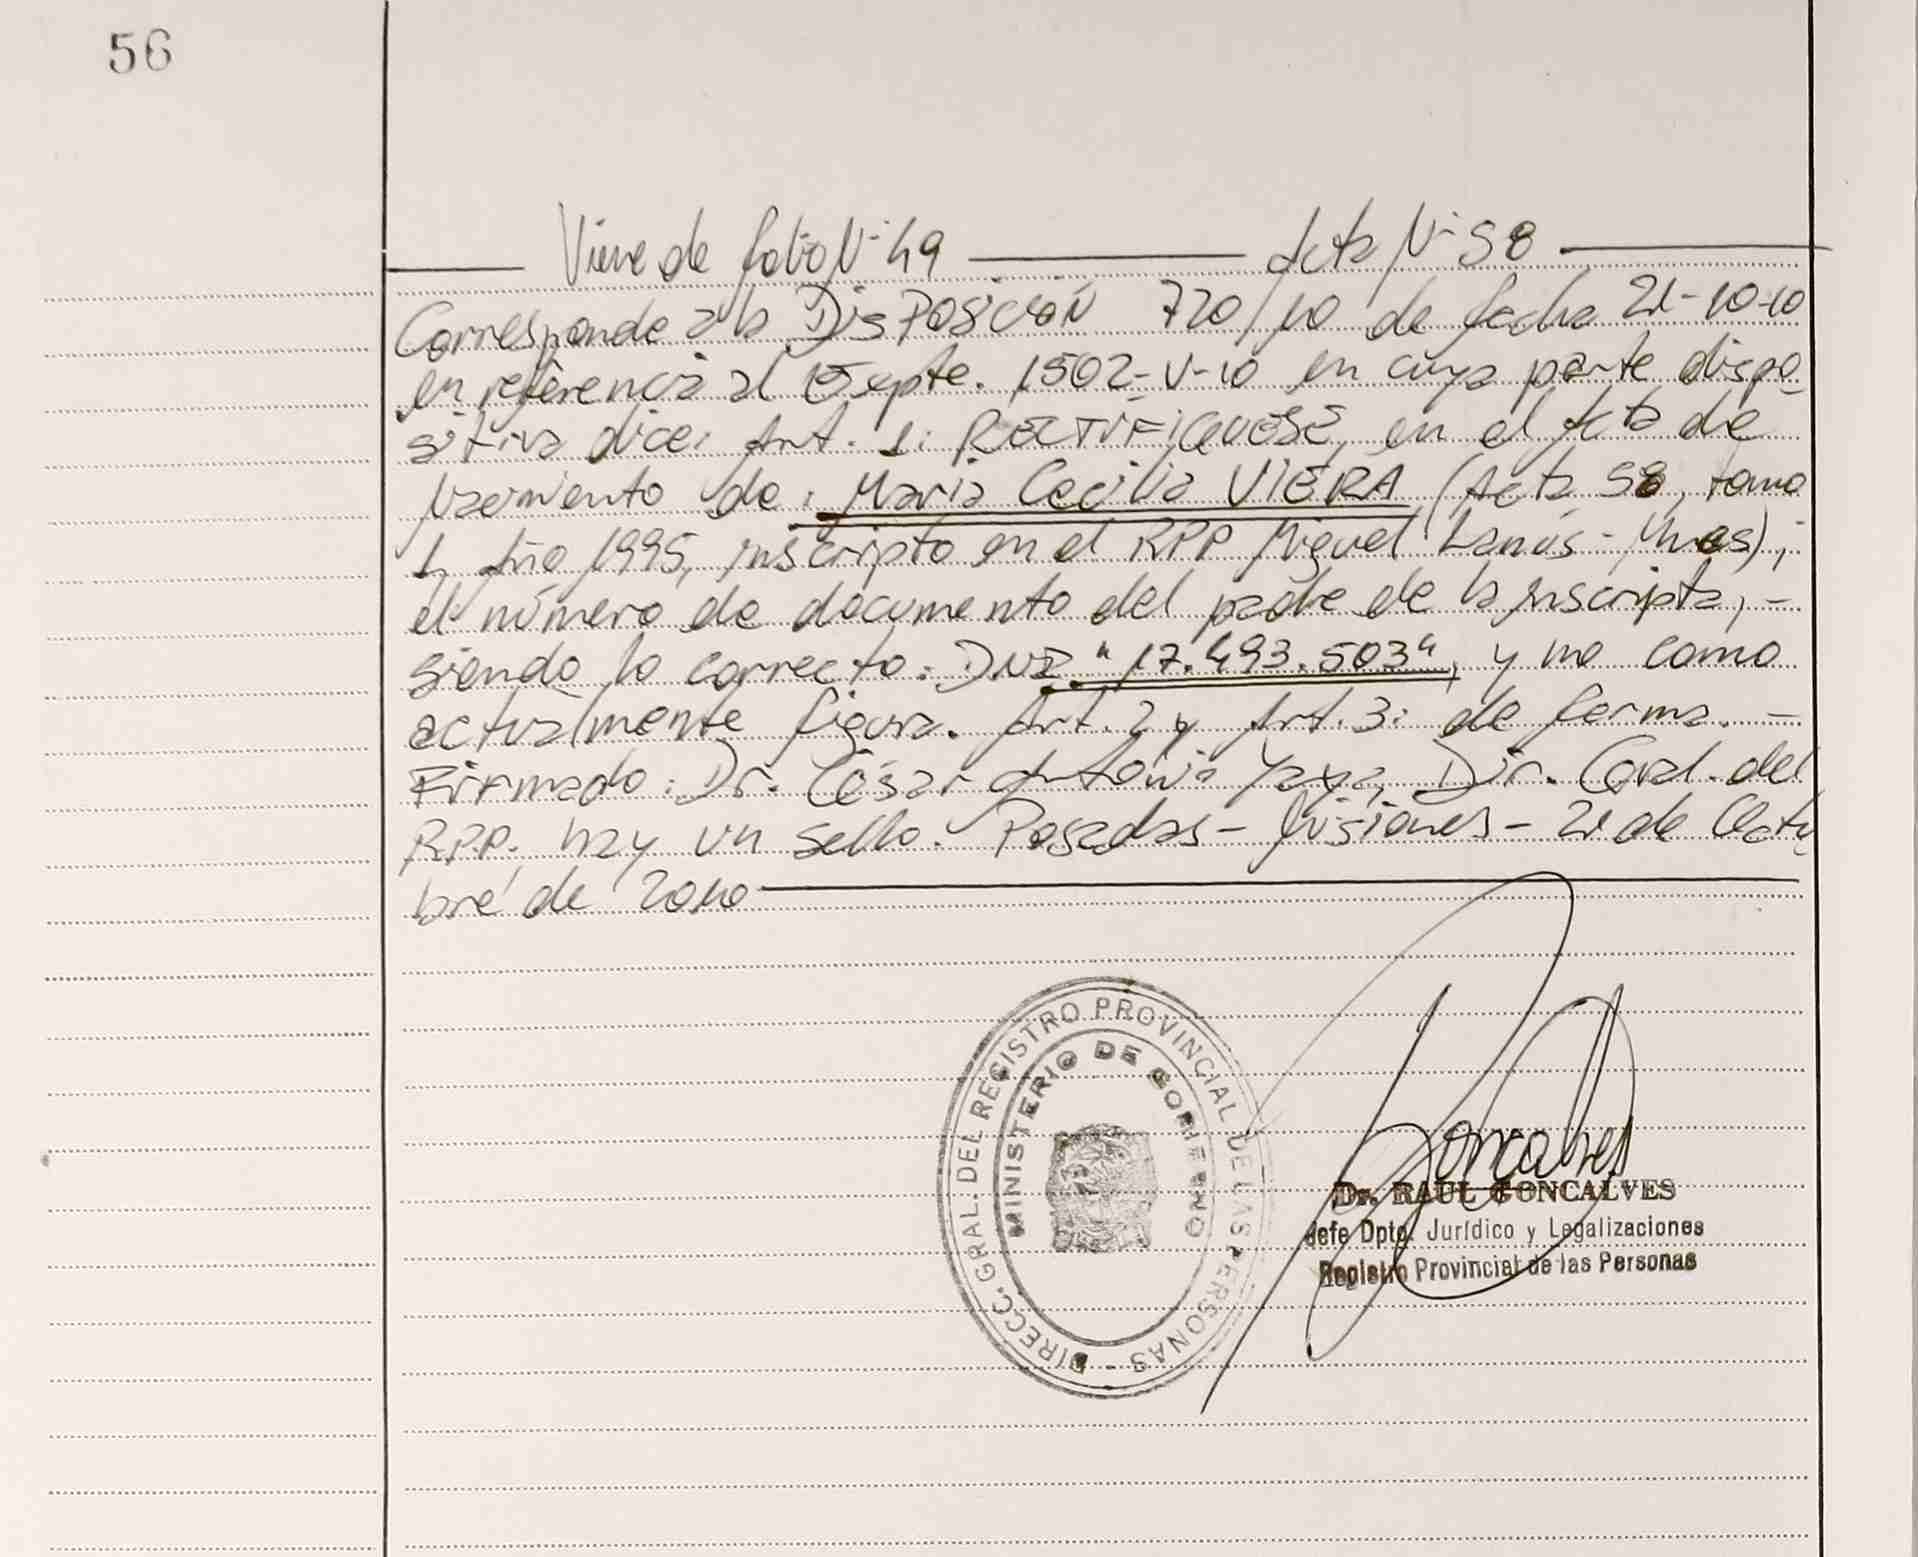 56
Viene de folio Nº 49 Acta Nº 58
Corresponde a la DISPOSICIÓN 720/10 de fecha 21-10-10
en referencia al Expte. 1502-V-10 en cuya parte dispo-
sitiva dice: Art. 1: RECTIFIQUESE, en el Acta de
Nacimiento de: Maria Cecilia VIERA (Acta 58, tomo
1, Año 1995, inscripto en el RPP Miguel Lanús - Mnes);
el número de documento del padre de la inscripta, -
siendo lo correcto: DNI "17.493.503", y no como
actualmente figura. Art. 2 y Art. 3: de forma. -
Firmado: Dr. César Antonio Yaya, Dir. Gral. del
RPP. hay un sello. Posadas - Misiones - 21 de Octu
bre de 2010
DIRECC. GRAL. DEL REGISTRO PROVINCIAL DE LAS PERSONAS -
MINISTERIO DE GOBIERNO
Goncalves
Dr. RAUL GONCALVES
Jefe Dpto. Jurídico y Legalizaciones
Registro Provincial de las Personas